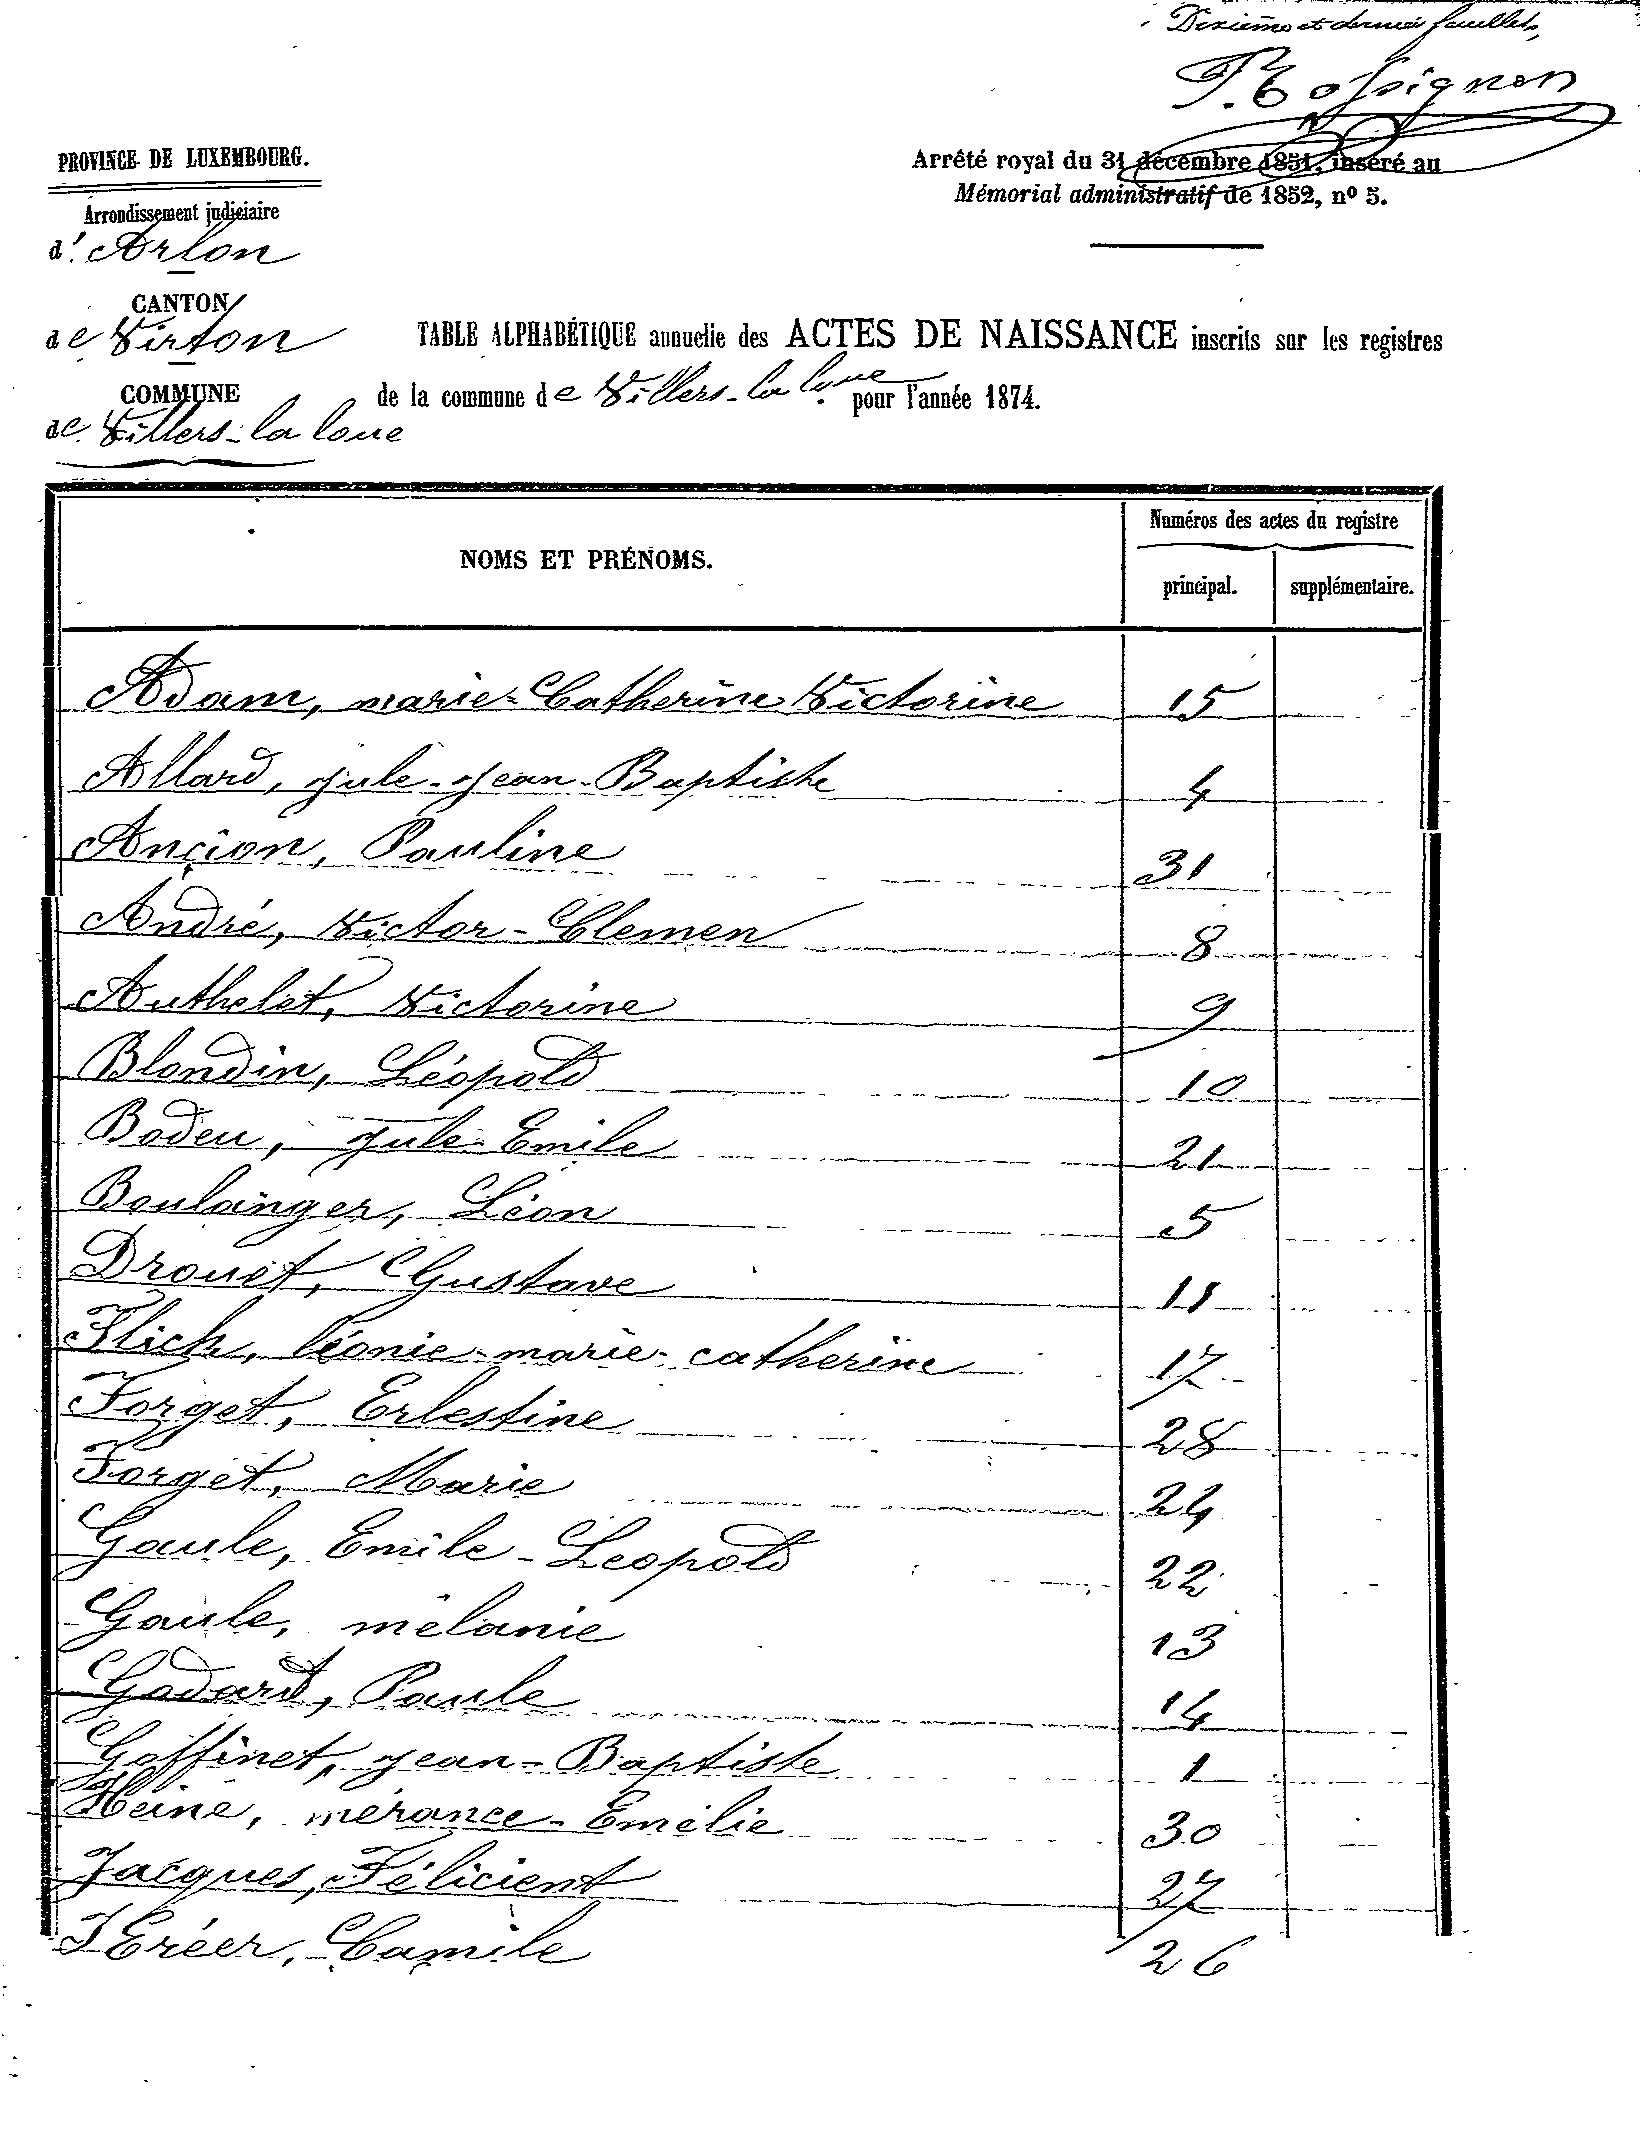 Dixième et dernier feuillet,
P. Rossignon
PROVINCE DE LUXEMBOURG.
Arrêté royal du 31 décembre 1851, inséré au
Mémorial administratif de 1852, nº 5.
Arrondissement judiciaire
d' Arlon
CANTON
de Virton
TABLE ALPHABÉTIQUE annuelle des ACTES DE NAISSANCE inscrits sur les registres
COMMUNE
de la commune de Villers-la loue pour l'année 1874.
de Villers-la loue
NOMS ET PRÉNOMS.
Numéros des actes du registre
principal.
supplémentaire.
Adam, marie-Catherine Victorine 15
Allard, jule-jean-Baptiste 4
Ancion, Pauline 31
André, Victor-Clemen 8
Authelet, Victorine 9
Blondin, Léopold 10
Bodeu, jule-Emile 21
Boulanger, Léon 5
Drouet, Gustave 11
Flich, léonie-marie-catherine 17
Forget, Erlestine 28
Forget, Marie 24
Gaule, Emile-Leopold 22
Gaule, mélanie 13
Godard, Paule 14
Goffinet, jean-Baptiste 1
Heine, mérance-Emélie 30
Jacques, Félicient 27
Camile 26